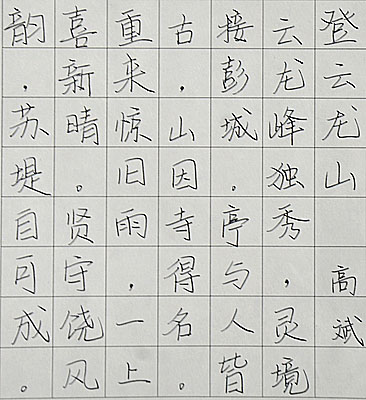 登云龙山 高斌
云龙峰独秀，灵境
接彭城。亭与人皆
古，山因寺得名。
重来惊旧雨，一上
喜新晴。贤守饶风
韵，苏堤自可成。